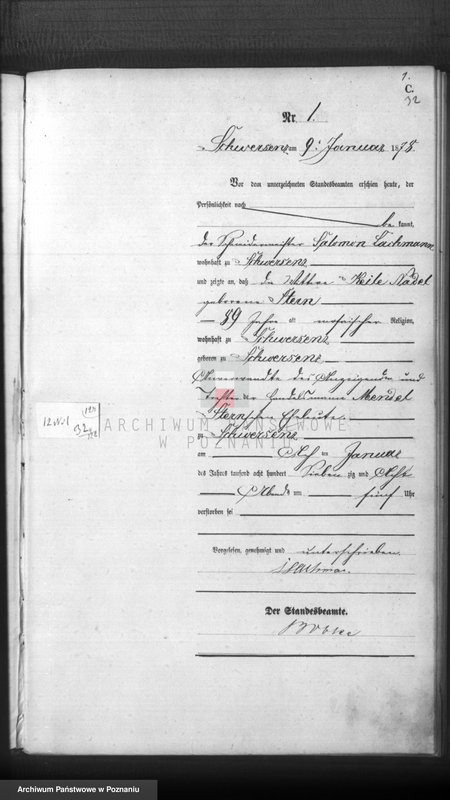 1.
C.
32
Nr. 1.
Schwersenz am 9. Januar 1878.
Vor dem unterzeichneten Standesbeamten erschien heute, der
Persönlichkeit nach
be kannt,
der Schneidermeister Salomon Lachmann
wohnhaft zu Schwersenz
und zeigte an, daß die Wittwe Keile Nadel
geborene Stern
89 Jahre alt, mosaischer Religion,
wohnhaft zu Schwersenz
geboren zu Schwersenz
Anverwandte des Anzeigenden und
Tochter der Handelsmann Mendel
Stern'schen Eheleute
zu Schwersenz
am Acht ten Januar
des Jahrs tausend acht hundert Sieben zig und Acht
Abends um fünf Uhr
verstorben sei
Vorgelesen, genehmigt und unterschrieben.
Der Standesbeamte.
ARCHIWUM PAŃSTWOWE
W POZNANIU
Archiwum Państwowe w Poznaniu